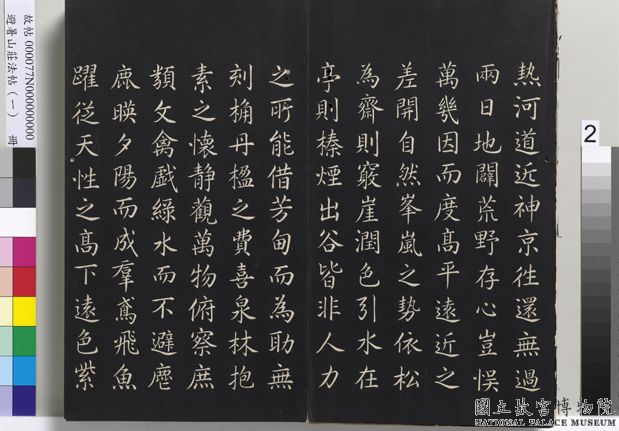 熱河道近神京徃還無過
兩日地闢荒野存心豈悞
萬幾因而度髙平遠近之
差開自然峯嵐之勢依松
為齋則竅崖潤色引水在
亭則榛煙出谷皆非人力
之所能借芳甸而為助無
刻桷丹楹之費喜泉林抱
素之懷静觀萬物俯察庶
類文禽戱綠水而不避麀
鹿暎夕陽而成羣鳶飛魚
躍從天性之髙下遠色紫
故帖 000077N000000000
避暑山莊法帖(一) 冊
2
國立故宮博物院
NATIONAL PALACE MUSEUM